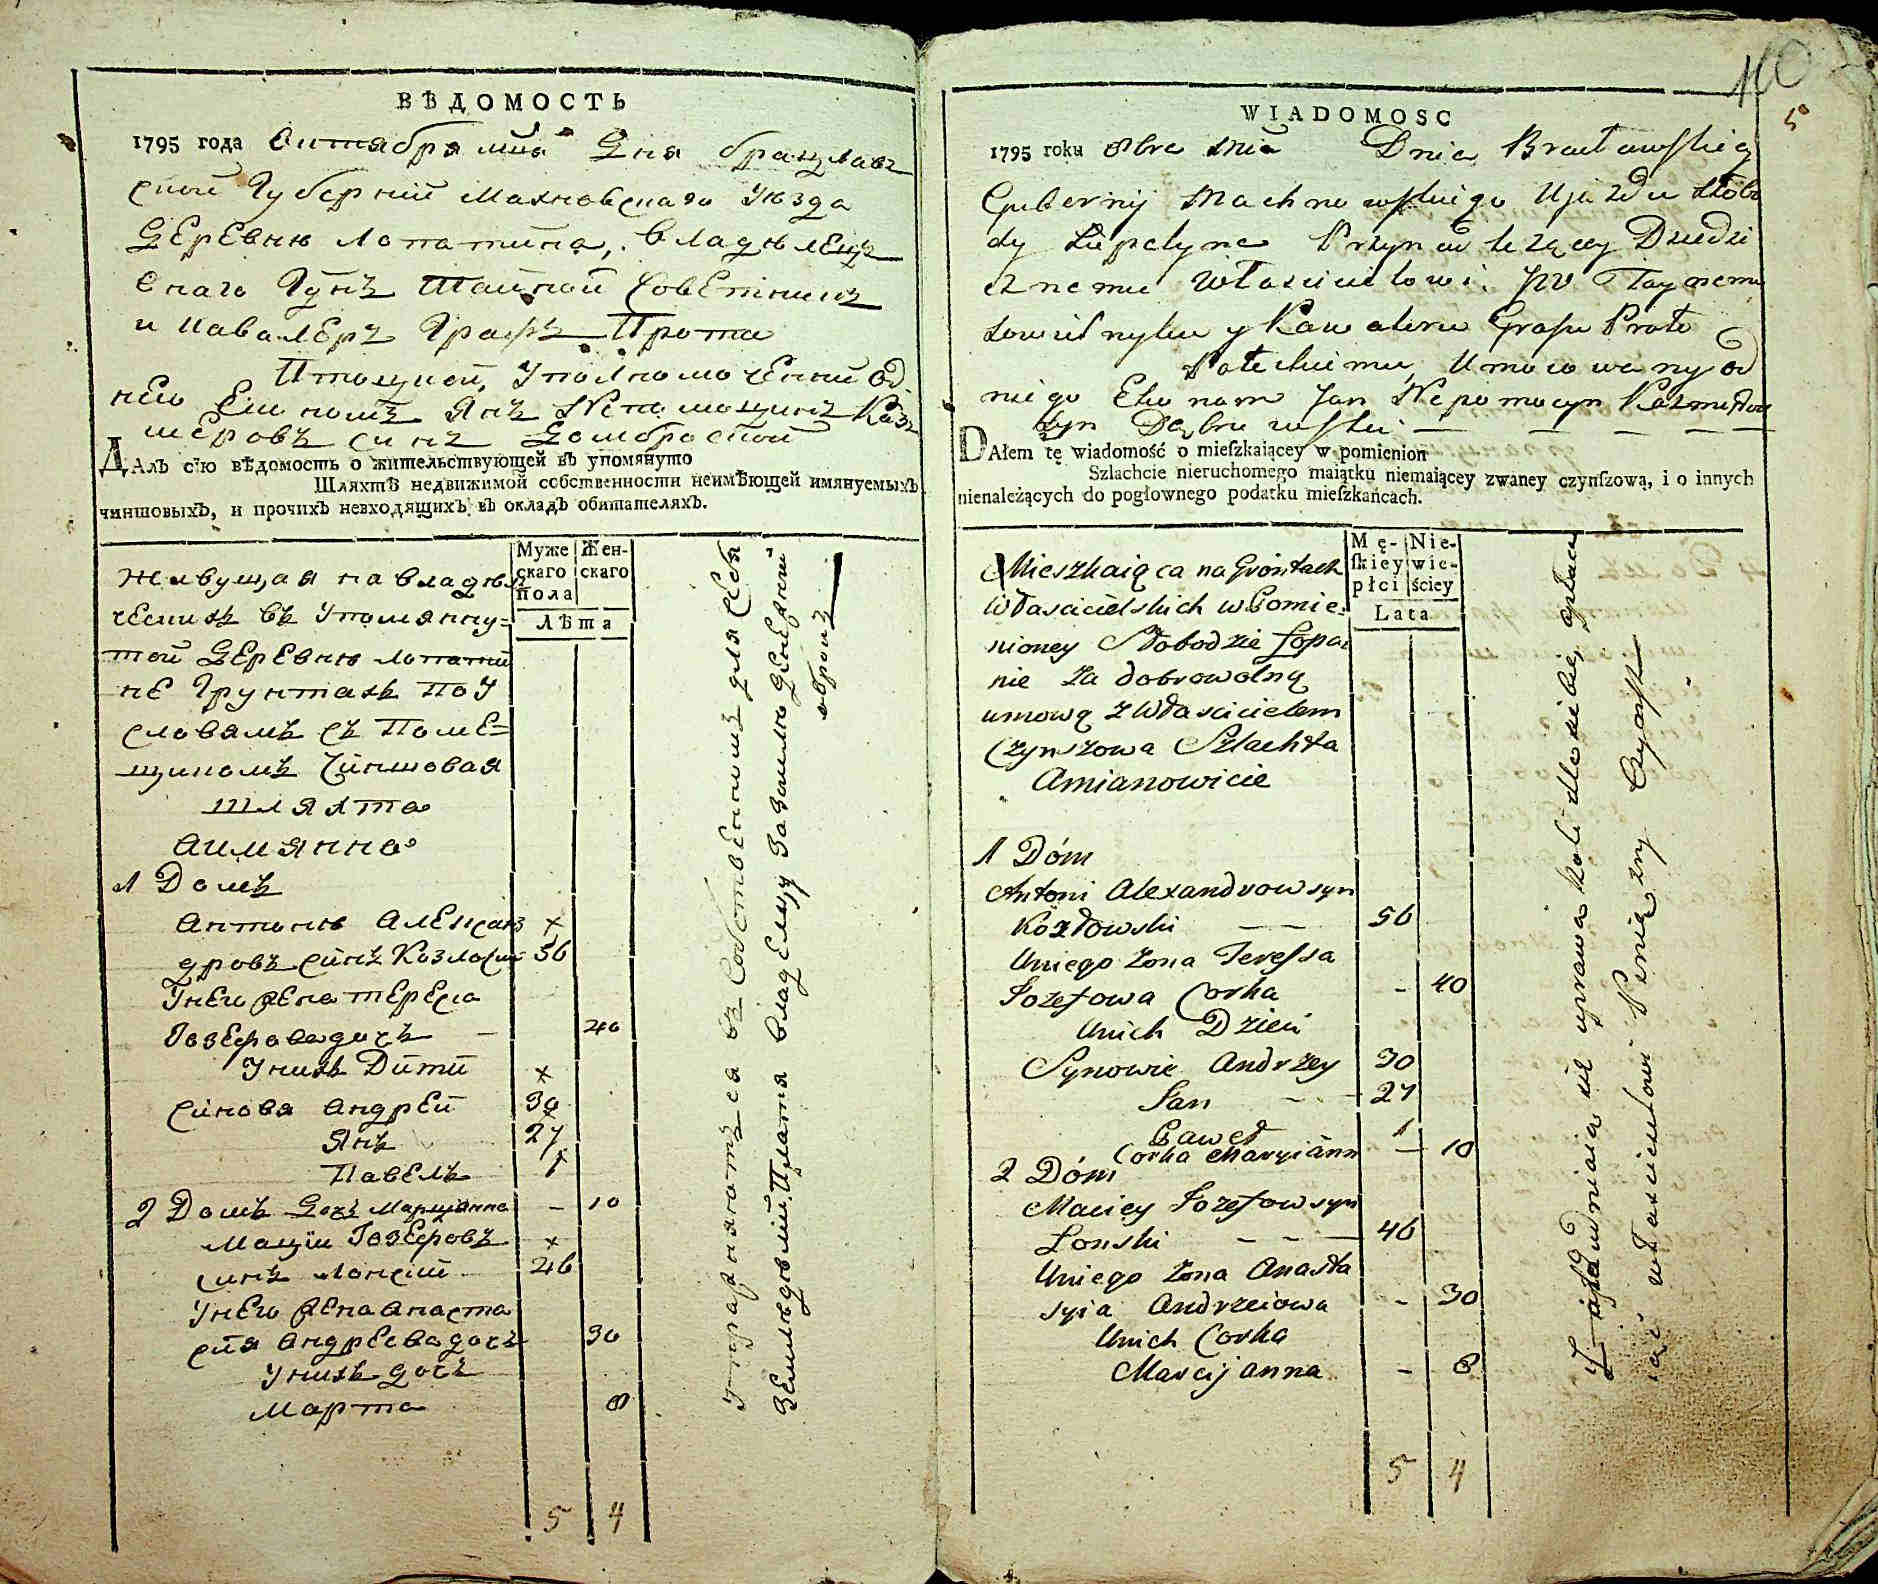 ВѢДОМОСТЬ
1795 года Октября мца Дня брацлав
ской Губерний Махновскаго Уезда
Деревню Лопатина, владѣлец
Снаго Гднъ Тайной Советникъ
и Кавалеръ Графъ Прота
Птоцкой, Уполномоченний од
него Економъ Янъ Непомоцинъ Каз
меровъ синъ Домбровской
ДАлъ сїю вѣдомость о жительствующей въ упомянуто
Шляхтѣ недвижимой собственности неимѣющей имянуемыхъ
чиншовыхъ, и прочихъ невходящихъ въ окладъ обитателяхъ.
Муже
скаго
пола
Жен-
скаго
Лѣта
Живущая на владѣл
ческихъ въ Упомянну=
той Деревню Лопати
не Грунтахъ по У
словямъ съ Поме=
щикомъ Чиншовая
Шляхта
Аимянно
1 Домъ
Антонъ Алексан
дровъ синъ Козловски 56
Унего жена Тереса
Іозефова дочъ - 40
Унихъ Дити
Синовя Андрей 30
Янъ 27
Павелъ 1
2 Домъ Дочъ Марцянна - 10
Мацїи Іозефовъ
синъ Лонский 46
Унего жена Анаста
сия Андреева дочъ 30
Унихъ дочъ
Марта 8
5 4
Упражняютъся въ Собственнимъ для себя
Земледѣлии Платя владелцу Заземлю Денежний
оброкъ
110
5
WIADOMOSC
1795 roku 8bra Mca Dnia Bracławskiey
Gubernij Machnowskiego Ujazdu Słobo
dy Łopatyna Przynależącey Dziedzi
cznemu Właścicielowi JW Taynemu
Sowietnyku y Kawaleru Grafu Proto
Potockiemu, Umocowany od
niego Ekonom Jan Nepomucyn Kazmirów
syn Dąbrowski — — — —
DAłem tę wiadomość o mieſzkaiącey w pomienion
Szlachcie nieruchomego maiątku niemaiącey zwaney czynſzową, i o innych
nienależących do pogłownego podatku mieſzkańcach.
Mę-
ſkiey
płci
Nie-
wie-
ściey
Lata
Mieszkaiąca na Grontach
Właścicielskich w Pomie-
nioney Słobodzie Łopa
nie za dobrowolną
umową z Właścicielem
Czynszowa Szlachta
Amianowicie
1 Dóm
Antoni Alexandrow syn
Kozłowski — — 56
Uniego Zona Teressa
Jozefowa Corka - 40
Unich Dzieci
Synowie Andrzey 30
Jan - - 27
Paweł 1
Corka Maryiann — 10
2 Dóm
Maciey Jozefow syn
Łonski - - — 46
Uniego Zona Anasta
syia Andrzeiowa - 30
Unich Corka
Marcijanna - 8
5 4
Właścicielowi Pienięzny Czynsz